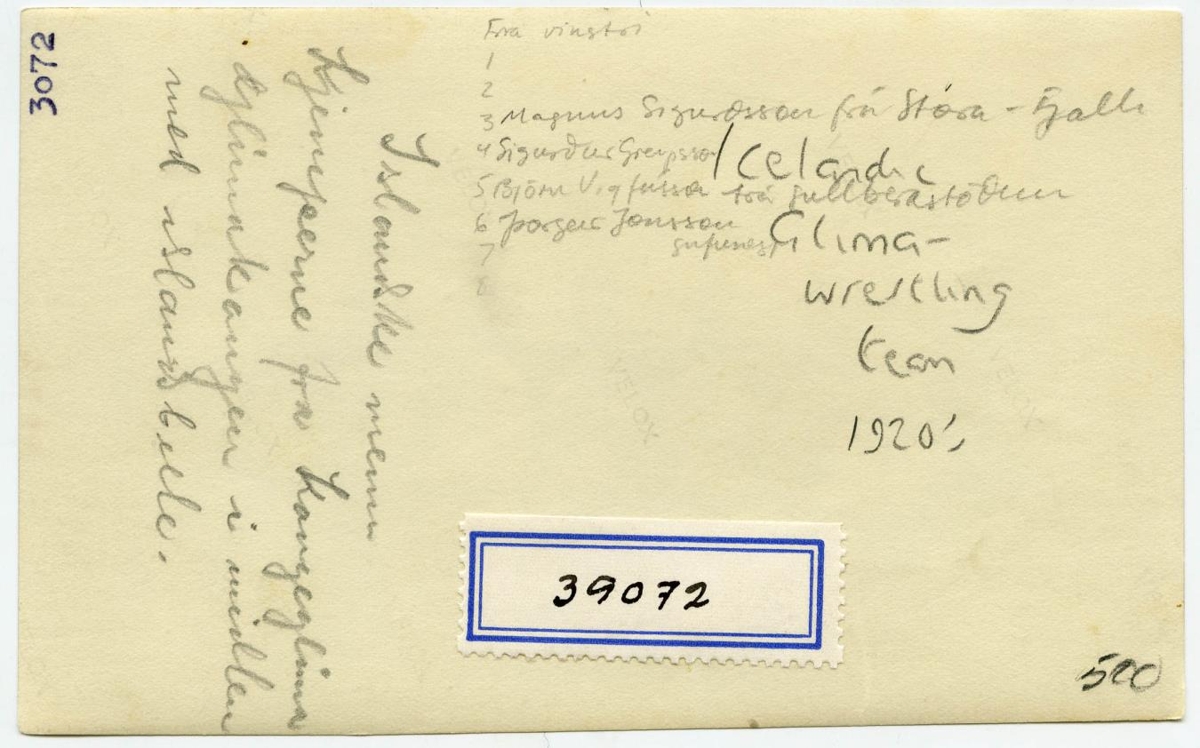 3072
Frá vinstri
1
2
3 Magnus Sigurdsson frá Stóra - Fjalli
4 Sigurður Greipsson
5 Björn Vigfússon frá Gullberastöðum
6 Þorgeir Jónsson
Gufunesi
7
8
Icelandic
Glima-
wrestling
team
1920's
Islandske menn
Kjemperne fra Kongeglima
Glimakongen i midten
med islandsbelte.
VELOX
VELOX
39072
520